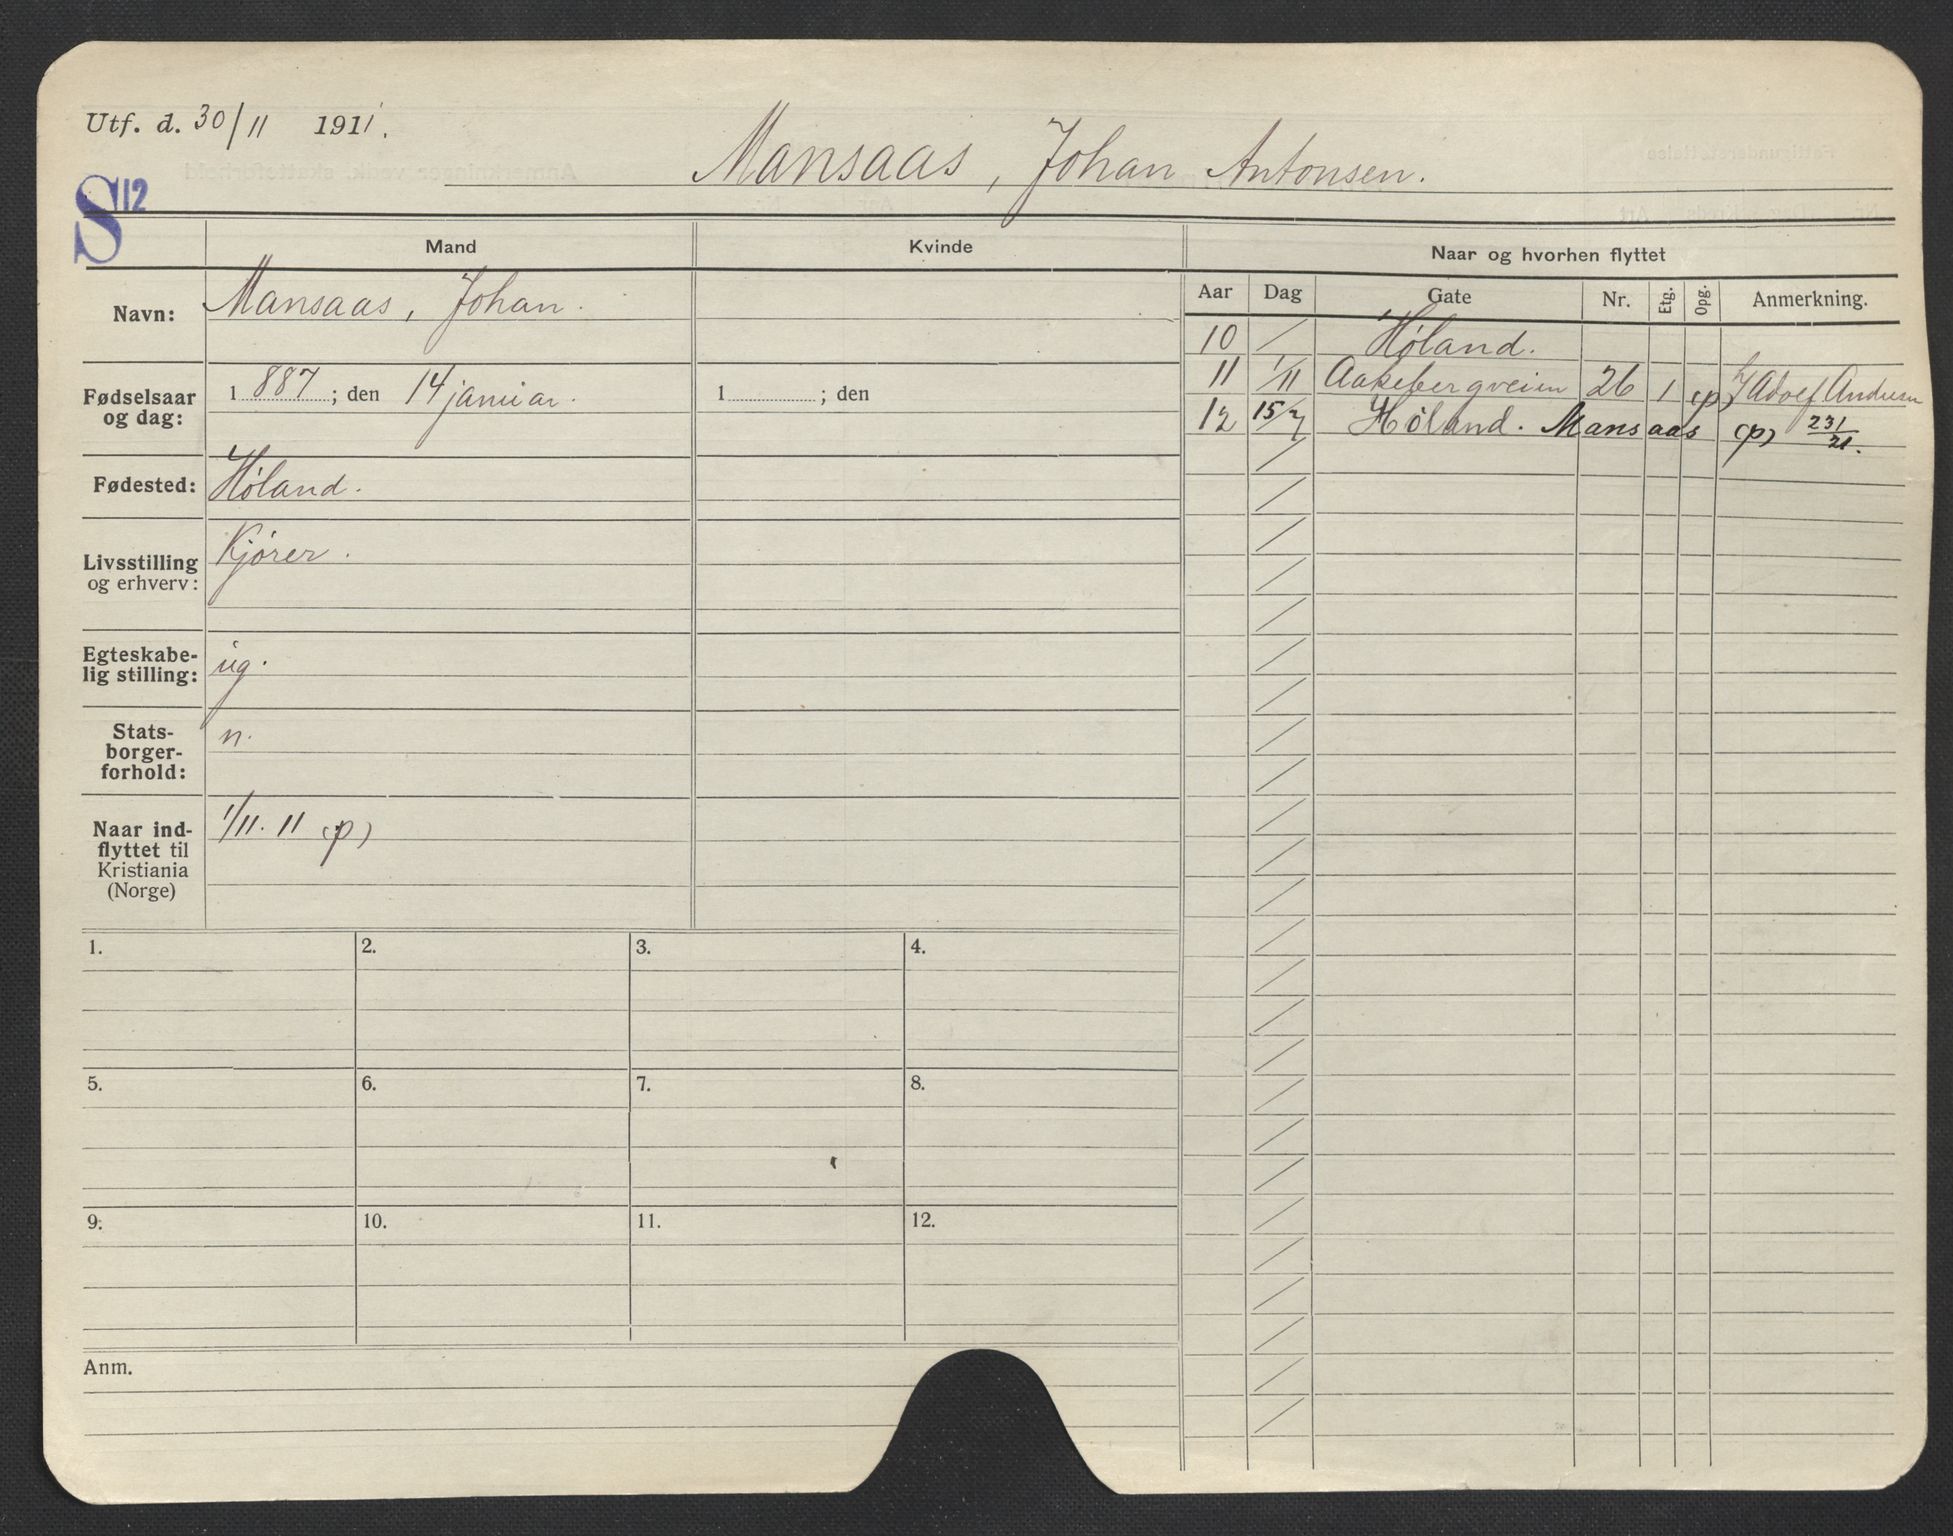 Utf. d. 30/11 1911.
Mansaas, Johan Antonsen.
S12
Mand
Kvinde
Naar og hvorhen flyttet
Aar Dag Gate Nr. Etg. Opg. Anmerkning.
Navn: Mansaas, Johan.
Fødselsaar og dag: 1 887 ; den 14 januar.
1 ; den
Fødested: Høland.
Livsstilling
og erhverv: Kjører.
Egteskabe-
lig stilling: ug.
Stats-
borger-
forhold: n.
Naar ind-
flyttet til
Kristiania
(Norge)
1/11. 11 (p)
10 / Høland.
11 1/11 Aakebergveien 26 1 (p) h/ Adolf Andersen
12 15/7 Høland. Mansaas (p) 231/21.
1. 2. 3. 4.
5. 6. 7. 8.
9. 10. 11. 12.
Anm.